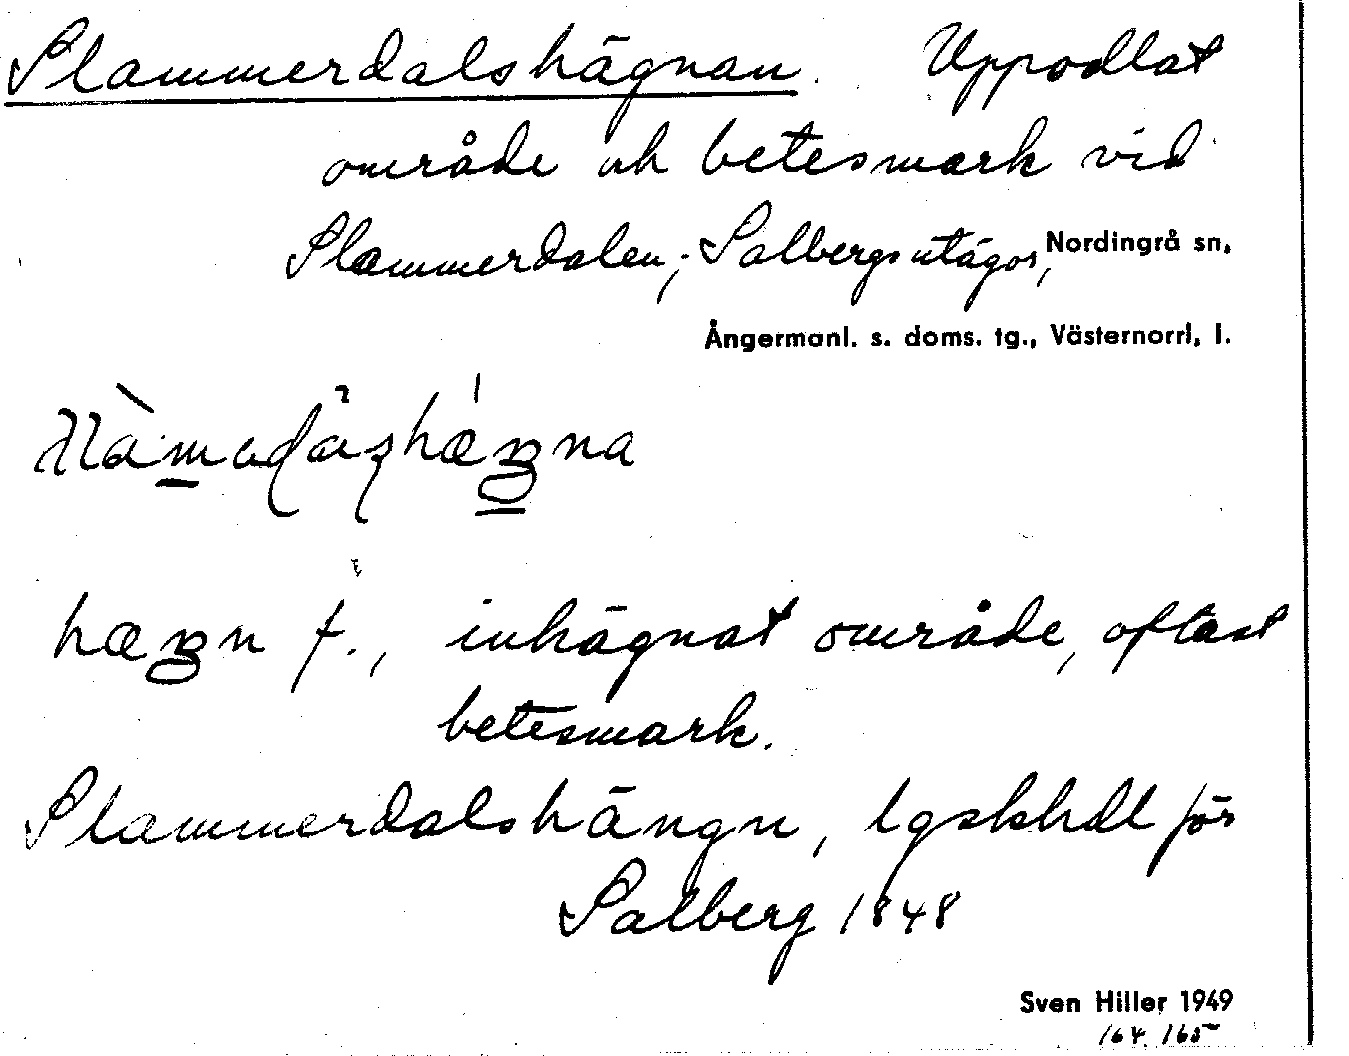 Slammerdalshägnan. Uppodlat
område och betesmark vid
Slammerdalen; Salbergs utägor, Nordingrå sn,
Ångermanl. s. doms. tg., Västernorrl, l.
f., inhägnat område, oftast
betesmark.
Slammerdalshängn, lgskhdl för
Salberg 1848
Sven Hiller 1949
164, 165